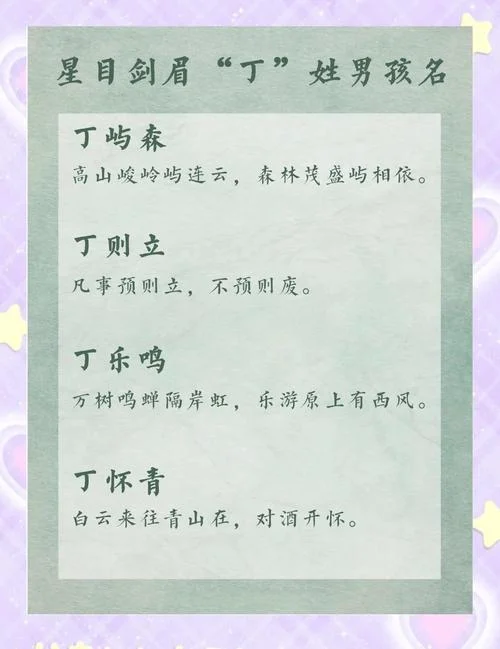 星目剑眉“丁”姓男孩名
丁屿森
高山峻岭屿连云，森林茂盛屿相依。
丁则立
凡事预则立，不预则废。
丁乐鸣
万树鸣蝉隔岸虹，乐游原上有西风。
丁怀青
白云来往青山在，对酒开怀。